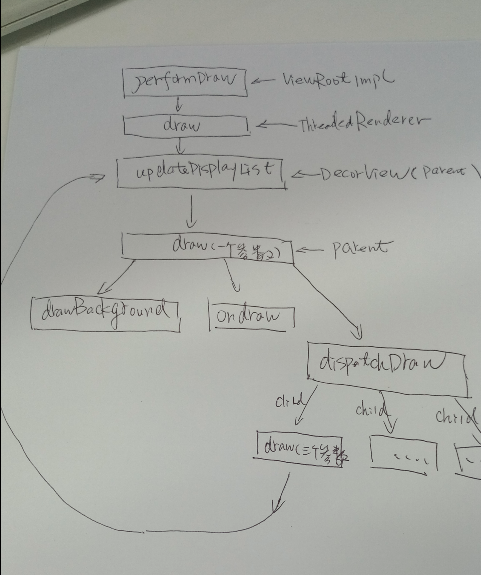 performDraw ViewRootImpl
draw ThreadedRenderer
updateDisplayList DecorView(parent)
draw(一个参数) parent
drawBackground ondraw
dispatchDraw
child child child
draw(三个参数 .... ..